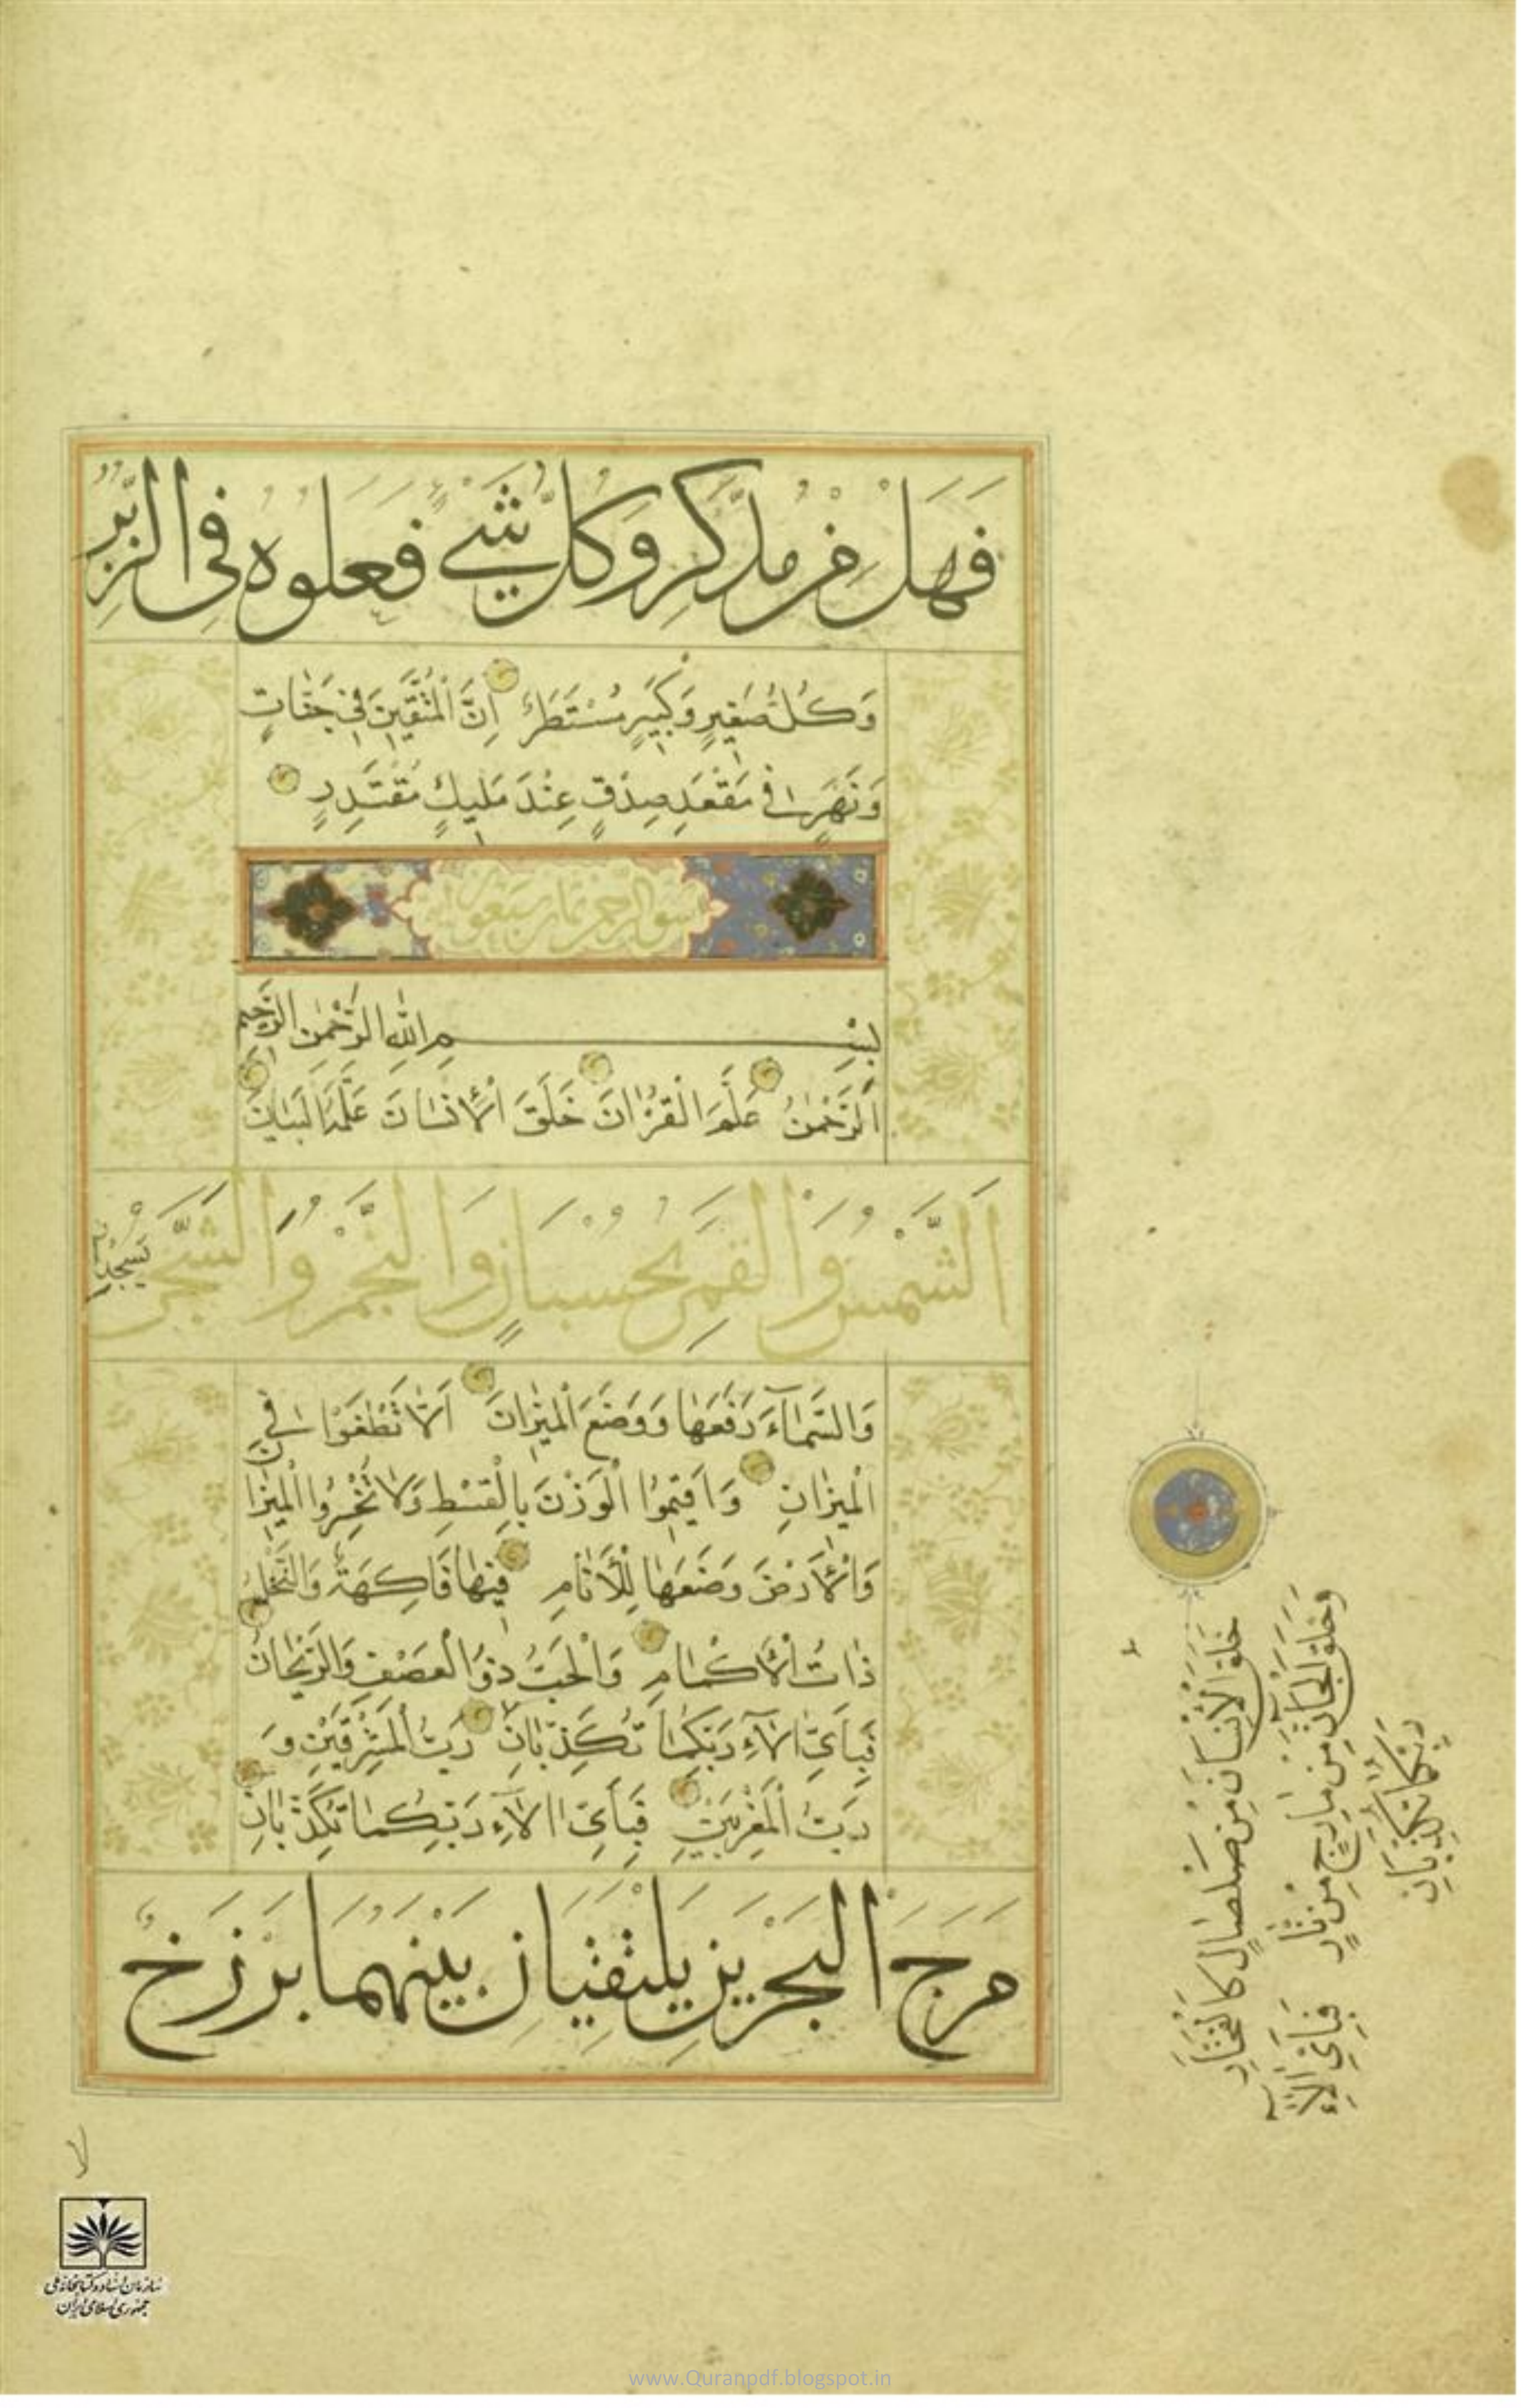 فَهَل مِن مدَّكِر وَكُلُّ شَيءٍ فَعَلوه فِي الزُّبُرِ
وَكُلُّ صَغِيرٍ وَكَبِيرٍ مُسْتَطَرٌ اِنَّ الْمُتَّقِينَ فِي جَنَّاتٍ
وَنَهَرٍ فِي مَقْعَدِ صِدْقٍ عِنْدَ مَلِيكٍ مُقْتَدِرٍ
بِسْمِ اللهِ الرَّحْمٰنِ الرَّحِيمِ
اَلرَّحْمٰنُ عَلَّمَ الْقُرْاٰنَ خَلَقَ الْاِنْسَانَ عَلَّمَهُ الْبَيَانَ
اَلشَّمْسُ وَالْقَمَرُ بِحُسْبَانٍ وَالنَّجْمُ وَالشَّجَرُ يَسْجُدَانِ
وَالسَّمَآءَ رَفَعَهَا وَوَضَعَ الْمِيزَانَ اَلَّا تَطْغَوْا فِي
الْمِيزَانِ وَاَقِيمُوا الْوَزْنَ بِالْقِسْطِ وَلَا تُخْسِرُوا الْمِيزَا
وَالْاَرْضَ وَضَعَهَا لِلْاَنَامِ فِيهَا فَاكِهَةٌ وَالنَّخْلُ
ذَاتُ الْاَكْمَامِ وَالْحَبُّ ذُو الْعَصْفِ وَالرَّيْحَانُ
فَبِاَيِّ اٰلَآءِ رَبِّكُمَا تُكَذِّبَانِ رَبُّ الْمَشْرِقَيْنِ وَ
رَبُّ الْمَغْرِبَيْنِ فَبِاَيِّ اٰلَآءِ رَبِّكُمَا تُكَذِّبَانِ
مَرَجَ الْبَحْرَيْنِ يَلْتَقِيَانِ بَيْنَهُمَا بَرْزَخٌ
خَلَقَ الْاِنْسَانَ مِنْ صَلْصَالٍ كَالْفَخَّارِ
وَخَلَقَ الْجَانَّ مِنْ مَارِجٍ مِنْ نَارٍ فَبِاَيِّ اٰلَآءِ
رَبِّكُمَا تُكَذِّبَانِ
سازمان اسناد و کتابخانه ملی
جمهوری اسلامی ایران
www.Quranpdf.blogspot.in